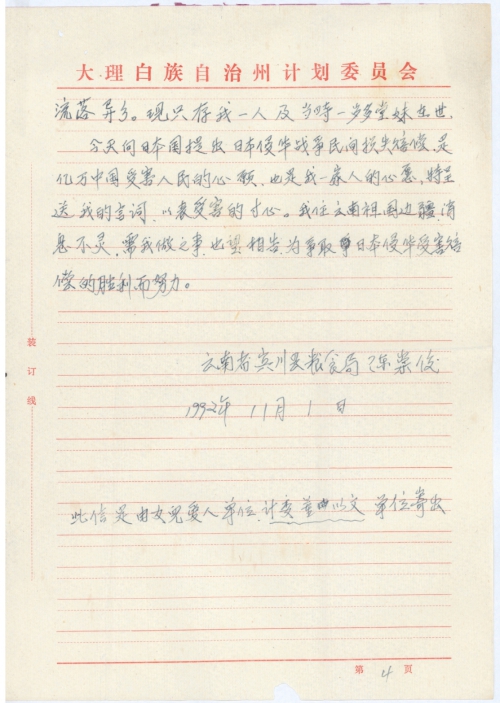 大理白族自治州计划委员会
流落异乡。现只存我一人及当时一岁多堂妹在世。
今天向日本国提出日本侵华战争民间损失赔偿，是
亿万中国受害人民的心愿，也是我一家人的心愿，特呈
送我的言词，以表受害的寸心。我住云南祖国边疆，消
息不灵，需我做之事，也望相告，为争取争日本侵华受害赔
偿的胜利而努力。
云南省宾川县粮食局 陈崇俊
1992年11月1日
此信是由女儿爱人单位，计委 以文 单位寄出
装订线
第4页